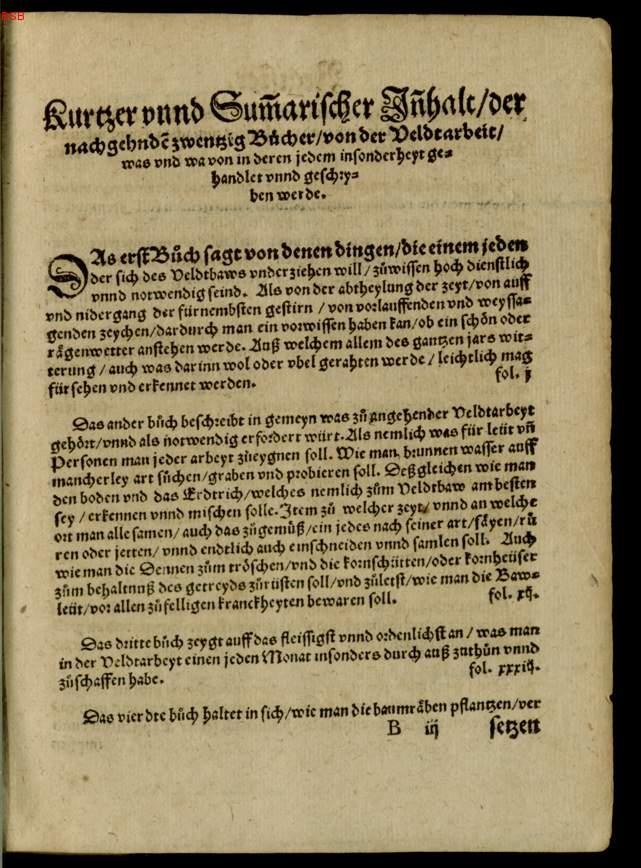 BSB
Kurtzer vnnd Sum̃arischer Jñhalt/der
nachgehndẽ zwentzig Bůcher/von der Veldtarbeit/
was vnd wa von in deren jedem insonderheyt ge⸗
handlet vnnd geschry⸗
ben werde.
DAs erst Bůch sagt von denen dingen/die einem jeden
der sich des Veldtbaws vnderziehen will/zůwissen hoch dienstlich
vnnd notwendig seind. Als von der abtheylung der zeyt/von auff
vnd nidergang der fürnembsten gestirn/von vorlauffenden vnd weyssa⸗
genden zeychen/dardurch man ein vorwissen haben kan/ob ein schön oder
rägenwetter anstehen werde. Auß welchem allem des gantzen jars wit⸗
terung/auch was darinn wol oder vbel gerahten werde/leichtlich mag
fürsehen vnd erkennet werden.
fol. j
Das ander bůch beschreibt in gemeyn was zů angehender Veldtarbeyt
gehört/vnnd als notwendig erfordert würt. Als nemlich was für leüt vñ
Personen man jeder arbeyt zůeygnen soll. Wie man brunnen wasser auff
mancherley art sůchen/graben vnd probieren soll. Deßgleichen wie man
den boden vnd das Erdtrich/welches nemlich zům Veldtbaw am besten
sey/erkennen vnnd mischen solle. Jtem zů welcher zeyt/vnnd an welche
ort man alle samen/auch das zůgemůß/ein jedes nach seiner art/säyen/rü
ren oder jetten/vnnd endtlich auch einschneiden vnnd samlen soll. Auch
wie man die Dennen zům tröschen/vnd die kornschütten/oder kornheüser
zům behaltnuß des getreyds zůrüsten soll/vnd zůletst/wie man die Baw⸗
leüt/vor allen zůfelligen kranckheyten bewaren soll.
fol. xij.
Das dritte bůch zeygt auff das fleissigst vnnd ordenlichst an/was man
in der Veldtarbeyt einen jeden Monat insonders durch auß zuthůn vnnd
zůschaffen habe.
fol. xxxiij.
Das vierdte bůch haltet in sich/wie man die baumräben pflantzen/ver
B iij
setzen